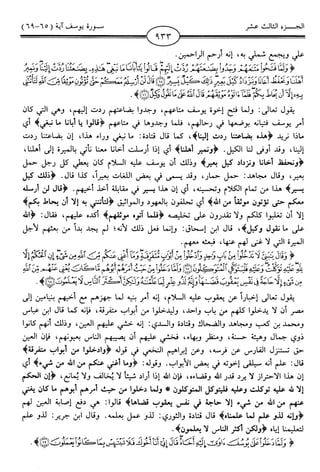 الجزء الثالث عشر
سورة يوسف آية (٦٥-٦٩)
٩٣٣
علي ويجمع شملي به، إنه أرحم الراحمين.
﴿وَلَمَّا فَتَحُوا مَتَاعَهُمْ وَجَدُوا بِضَاعَتَهُمْ رُدَّتْ إِلَيْهِمْ قَالُوا يَا أَبَانَا مَا نَبْغِي هَذِهِ بِضَاعَتُنَا رُدَّتْ إِلَيْنَا وَنَمِيرُ
أَهْلَنَا وَنَحْفَظُ أَخَانَا وَنَزْدَادُ كَيْلَ بَعِيرٍ ذَلِكَ كَيْلٌ يَسِيرٌ (٦٥) قَالَ لَنْ أُرْسِلَهُ مَعَكُمْ حَتَّى تُؤْتُونِ مَوْثِقًا مِنَ اللَّهِ لَتَأْتُنَّنِي
بِهِ إِلَّا أَنْ يُحَاطَ بِكُمْ فَلَمَّا آتَوْهُ مَوْثِقَهُمْ قَالَ اللَّهُ عَلَى مَا نَقُولُ وَكِيلٌ (٦٦)﴾.
يقول تعالى: ولما فتح إخوة يوسف متاعهم، وجدوا بضاعتهم ردت إليهم، وهي التي كان
أمر يوسف فتيانه بوضعها في رحالهم، فلما وجدوها في متاعهم ﴿قالوا يا أبانا ما نبغي﴾ أي
ماذا نريد ﴿هذه بضاعتنا ردت إلينا﴾، كما قال قتادة: ما نبغي وراء هذا، إن بضاعتنا ردت
إلينا، وقد أوفي لنا الكيل. ﴿ونمير أهلنا﴾ أي إذا أرسلت أخانا معنا نأتي بالميرة إلى أهلنا،
﴿ونحفظ أخانا ونزداد كيل بعير﴾ وذلك أن يوسف عليه السلام كان يعطي كل رجل حمل
بعير، وقال مجاهد: حمل حمار، وقد يسمى في بعض اللغات بعيراً، كذا قال. ﴿ذلك كيل
يسير﴾ هذا من تمام الكلام وتحسينه، أي إن هذا يسير في مقابلة أخذ أخيهم. ﴿قال لن أرسله
معكم حتى تؤتون موثقاً من الله﴾ أي تحلفون بالعهود والمواثيق ﴿لتأتنني به إلا أن يحاط بكم﴾
إلا أن تغلبوا كلكم ولا تقدرون على تخليصه ﴿فلما آتوه موثقهم﴾ أكده عليهم، فقال: ﴿الله
على ما نقول وكيل﴾، قال ابن إسحاق: وإنما فعل ذلك لأنه لم يجد بداً من بعثهم لأجل
الميرة التي لا غنى لهم عنها، فبعثه معهم.
﴿وَقَالَ يَا بَنِيَّ لَا تَدْخُلُوا مِنْ بَابٍ وَاحِدٍ وَادْخُلُوا مِنْ أَبْوَابٍ مُتَفَرِّقَةٍ وَمَا أُغْنِي عَنْكُمْ مِنَ اللَّهِ مِنْ شَيْءٍ إِنِ الْحُكْمُ إِلَّا
لِلَّهِ عَلَيْهِ تَوَكَّلْتُ وَعَلَيْهِ فَلْيَتَوَكَّلِ الْمُتَوَكِّلُونَ (٦٧) وَلَمَّا دَخَلُوا مِنْ حَيْثُ أَمَرَهُمْ أَبُوهُمْ مَا كَانَ يُغْنِي عَنْهُمْ مِنَ اللَّهِ مِنْ
شَيْءٍ إِلَّا حَاجَةً فِي نَفْسِ يَعْقُوبَ قَضَاهَا وَإِنَّهُ لَذُو عِلْمٍ لِمَا عَلَّمْنَاهُ وَلَكِنَّ أَكْثَرَ النَّاسِ لَا يَعْلَمُونَ (٦٨)﴾.
يقول تعالى إخباراً عن يعقوب عليه السلام، إنه أمر بنيه لما جهزهم مع أخيهم بنيامين إلى
مصر أن لا يدخلوا كلهم من باب واحد، وليدخلوا من أبواب متفرقة، فإنه كما قال ابن عباس
ومحمد بن كعب ومجاهد والضحاك وقتادة والسدي: إنه خشي عليهم العين، وذلك أنهم كانوا
ذوي جمال وهيئة حسنة، ومنظر وبهاء، فخشي عليهم أن يصيبهم الناس بعيونهم، فإن العين
حق تستنزل الفارس عن فرسه، وعن إبراهيم النخعي في قوله ﴿وادخلوا من أبواب متفرقة﴾
قال: علم أنه سيلقى إخوته في بعض الأبواب. وقوله: ﴿وما أغني عنكم من الله من شيء﴾ أي
إن هذا الاحتراز لا يرد قدر الله وقضاءه، فإن الله إذا أراد شيئاً لا يخالف ولا يمانع، ﴿إن الحكم
إلا لله عليه توكلت وعليه فليتوكل المتوكلون * ولما دخلوا من حيث أمرهم أبوهم ما كان يغني
عنهم من الله من شيء إلا حاجة في نفس يعقوب قضاها﴾ قالوا: هي دفع إصابة العين لهم
﴿وإنه لذو علم لما علمناه﴾ قال قتادة والثوري: لذو عمل بعلمه. وقال ابن جرير: لذو علم
لتعليمنا إياه ﴿ولكن أكثر الناس لا يعلمون﴾.
﴿وَلَمَّا دَخَلُوا عَلَى يُوسُفَ آوَى إِلَيْهِ أَخَاهُ قَالَ إِنِّي أَنَا أَخُوكَ فَلَا تَبْتَئِسْ بِمَا كَانُوا يَعْمَلُونَ (٦٩)﴾.